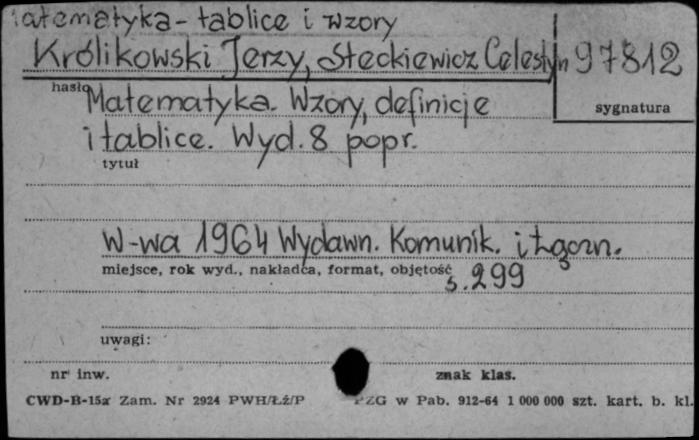 atematyka - tablice i wzory
Królikowski Jerzy, Steckiewicz Celestyn 97812
hasło
sygnatura
Matematyka. Wzory, definicje
i tablice. Wyd. 8 popr.
tytuł
W-wa 1964 Wydawn. Komunik. i Łączn.
miejsce, rok wyd., nakładca, format, objętość
s. 299
uwagi:
nr inw. znak klas.
CWD-B-15a Zam. Nr 2924 PWH/Łź/P PZG w Pab. 912-64 1 000 000 szt. kart. b. kl.